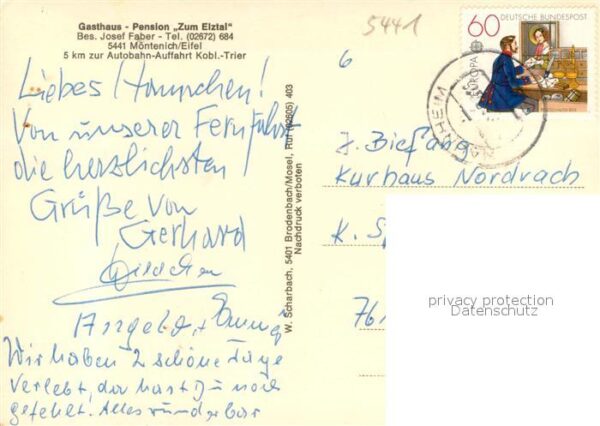 Gasthaus - Pension „Zum Elztal"
Bes. Josef Faber - Tel. (02672) 684
5441 Möntenich/Eifel
5 km zur Autobahn-Auffahrt Kobl.-Trier
5441
60
DEUTSCHE BUNDESPOST
EUROPA
6
Liebes Hannchen!
Von unserer Fernfahrt
die herzlichsten
Grüße von
Gerhard
W. Scharbach, 5401 Brodenbach/Mosel, Ruf (02605) 403
Nachdruck verboten
J. Biefang
Kurhaus Nordrach
K.
761
privacy protection
Datenschutz
Wir haben 2 schöne Tage
verlebt, da hast Du noch
gefehlt. Alles wunderbar